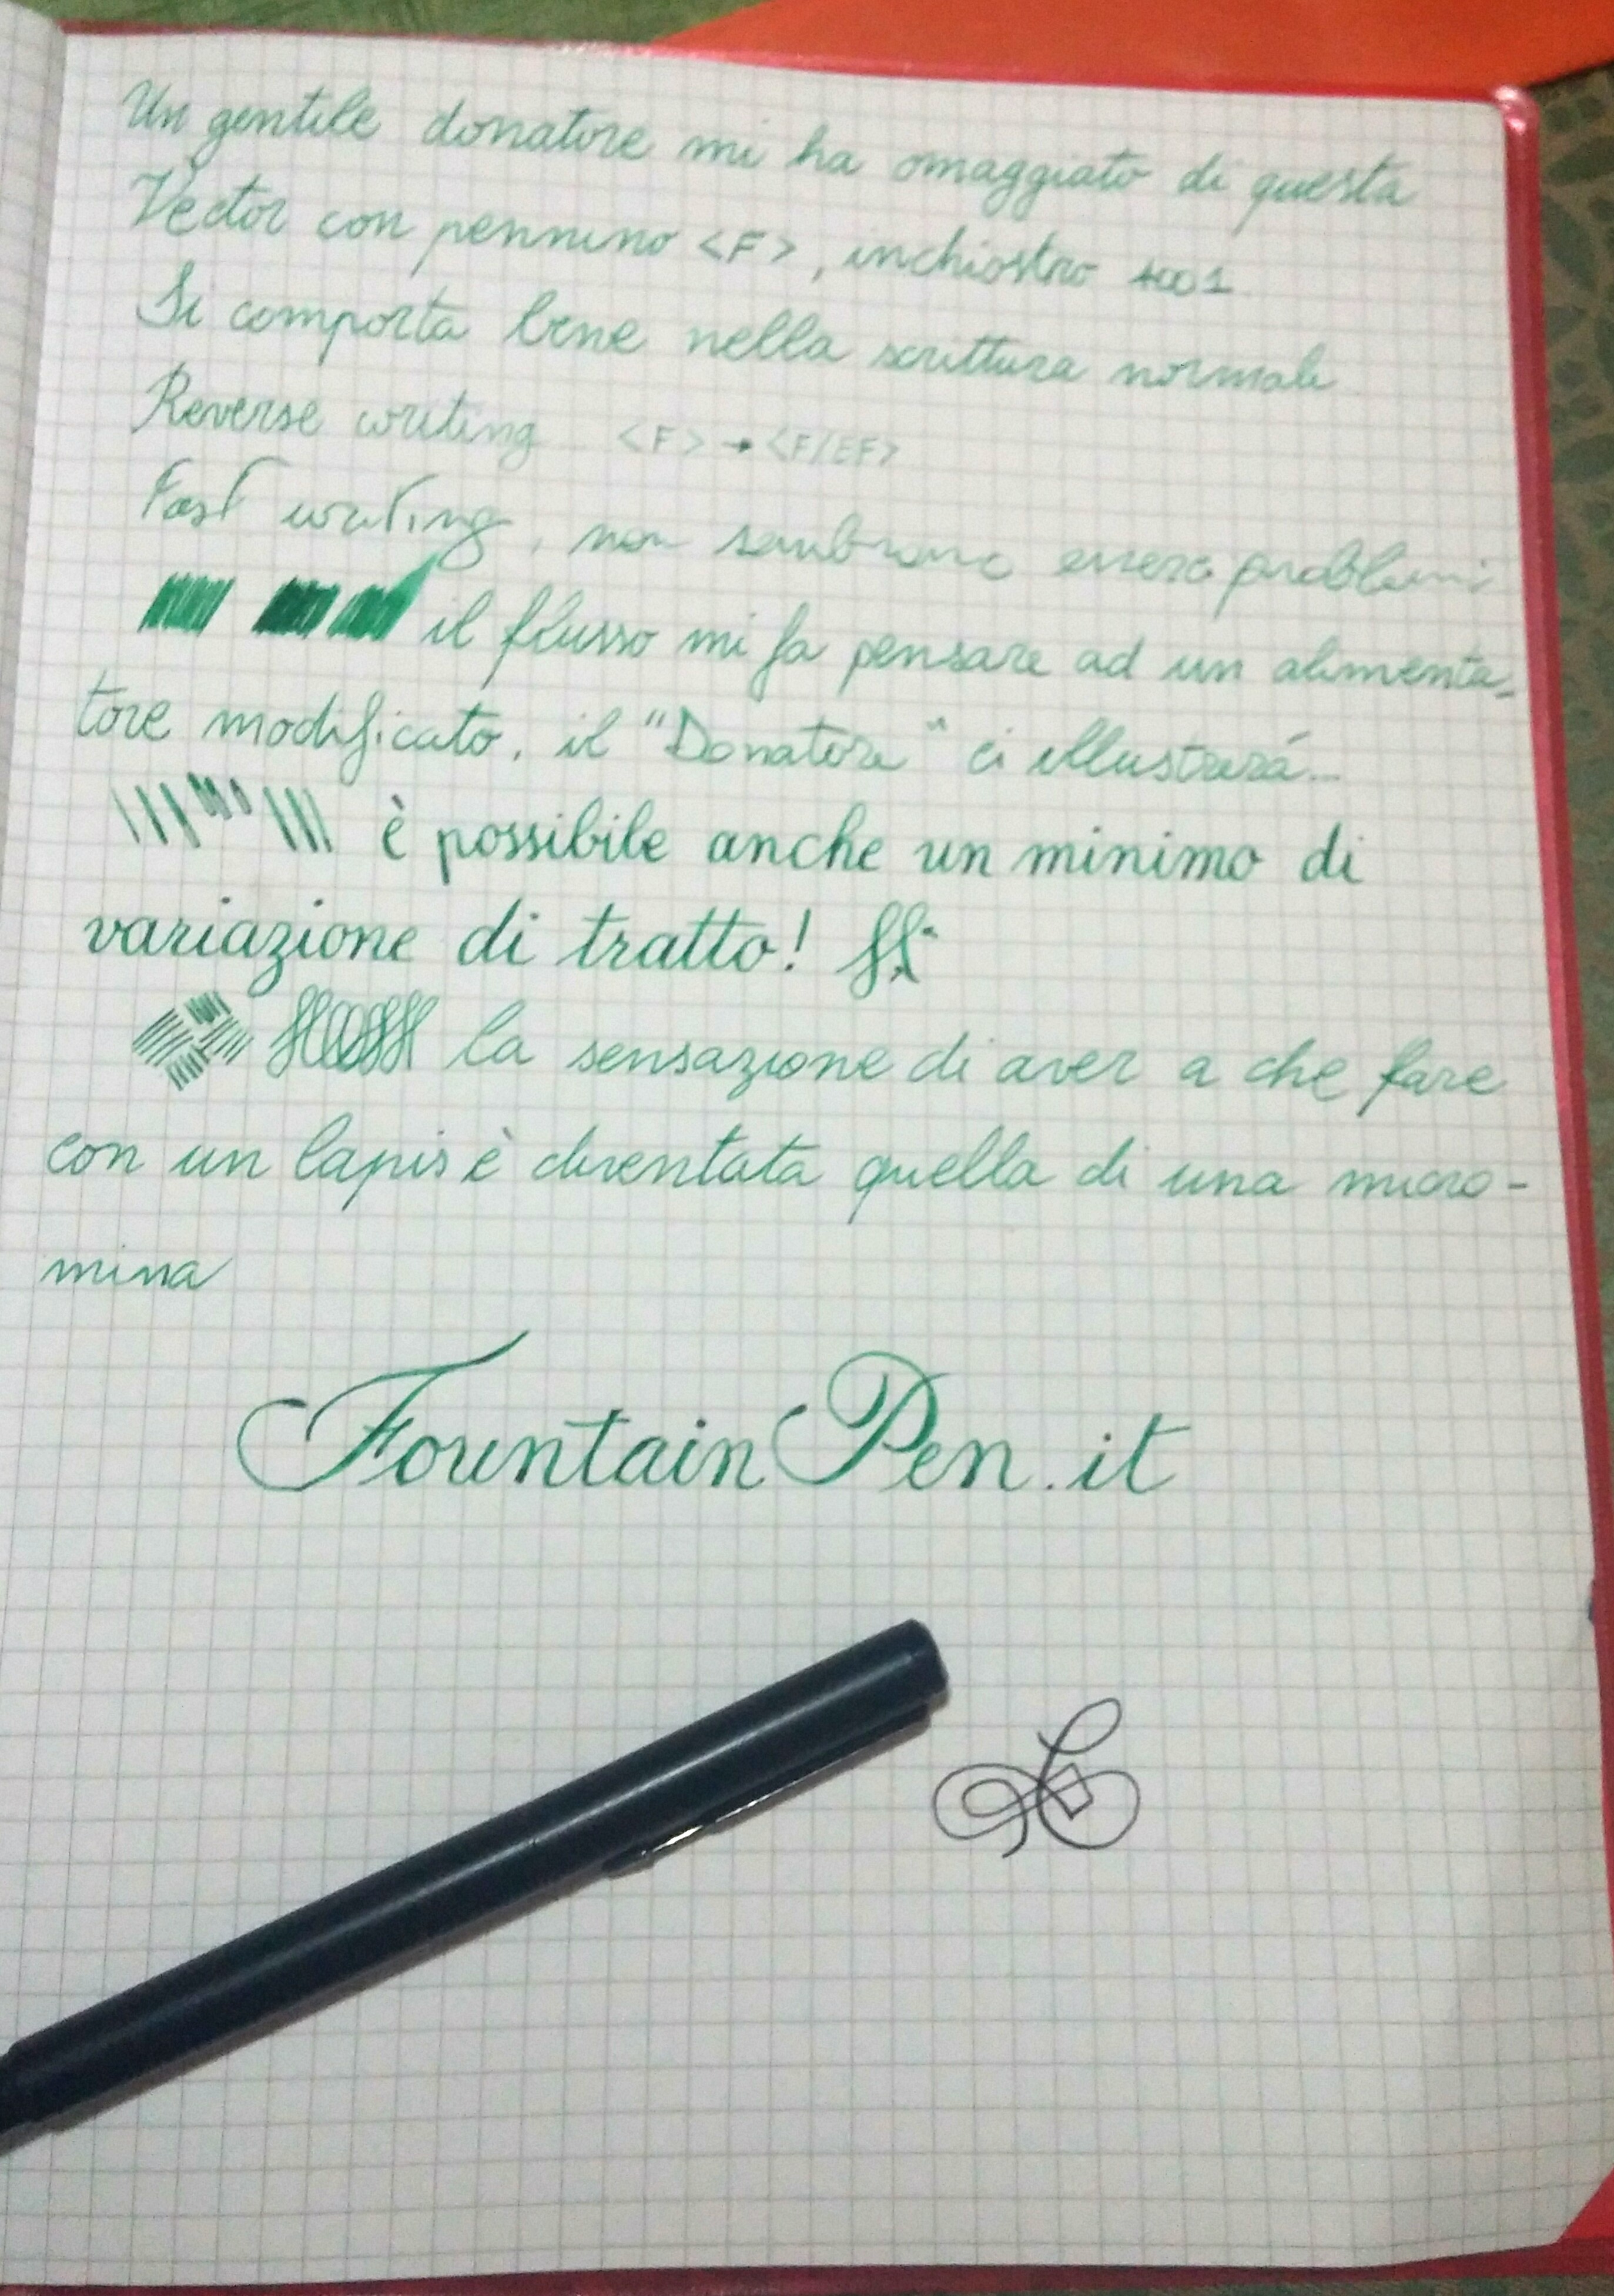 Un gentile donatore mi ha omaggiato di questa
Vector con pennino <F>, inchiostro 4001
Si comporta bene nella scrittura normale
Reverse writing <F> → <F/EF>
Fast writing, non sembrano esserci problemi
il flusso mi fa pensare ad un alimenta-
tore modificato, il "Donatore" ci illustrerá...
è possibile anche un minimo di
variazione di tratto!
la sensazione di aver a che fare
con un lapis è diventata quella di una micro-
mina
FountainPen.it